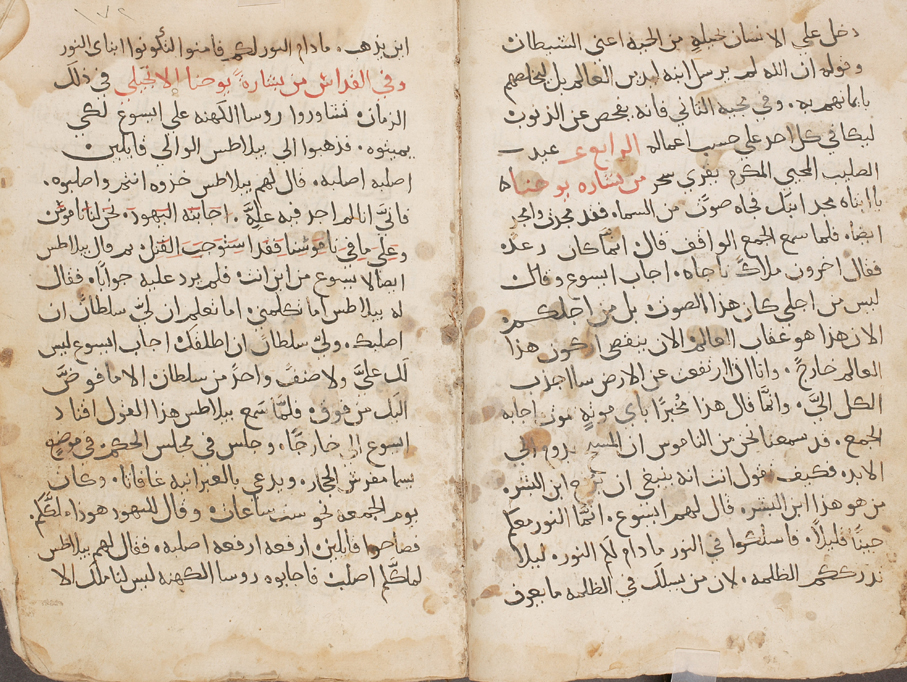 دخل علي الانسان خيله من الحيه اعني الشيطان
وقوله ان الله لم يرسل ابنه ليدين العالم بل ليخلصهم
بايمانهم به. وفي مجيه الثاني فانه يفحص عن الزنوب
ليكافي كل احد علي حسب اعماله الرابع عشر عيد
الصليب المحيي المكرم يقري سحر من بشاره يوحنا
يا ابتاه مجد ابنك فجاه صوت من السما. قد مجدت وامجد
ايضا. فلما سمع الجمع الواقف قال انما كان رعد
فقال اخرون ملاكا ناجاه. اجاب ايسوع وقال
ليس من اجلي كان هذا الصوت بل من اجلكم.
الان هذا هو عقاب العالم الان ينقصي اركون هذا
العالم خارجا. وانا ان ارتفعت عن الارض سااجزب
الكل اليّ. وانما قال هذا مخبرا باي موتة يموت اجابه
الجمع. قد سمعنا نحن من الناموس ان المسيح يدوم الي
الابد. فكيف تقول انت انه ينبغي ان يرتفع ابن البشر.
من هو هذا ابن البشر. قال لهم ايسوع. انما النور معكم
حينا قليلا. فاسلكوا في النور ما دام لكم النور. ليلا
تدرككم الظلمه. لان من يسلك في الظلمه ما يعرف
اين يذهب. ما دام النور لكم فامنوا لتكونوا ابناي النور
وفي القداس من بشارة يوحنا الانجيلي في ذلك
الزمان تشاوروا روسا الكهنه علي ايسوع لكي
يميتوه. فذهبوا الي بيلاطس الوالي قايلين
اصلبه اصلبه. قال لهم بيلاطس خزوه انتم واصلبوه.
فاني انا لم اجد فيه علة. اجابته اليهود. نحن لنا ناموس
وعلي ما في ناموسنا فقد استوجب القتل ثم قال بيلاطس
ايضا لايسوع من اين انت. فلم يرد عليه جوابا. فقال
له بيلاطس اما تكلمني. اما تعلم ان لي سلطان ان
اصلبك. ولي سلطان ان اطلقك اجاب ايسوع ليس
لك علي ولا صنف واحد من سلطان الا ما فوض
اليك من فوق. فلما سمع بيلاطس هذا القول اقتاد
ايسوع الي خارجا. وجلس في مجلس الحكم. في موضع
يسما مفرش الحجار. ويدعي بالعبرانيه غافاثا. وكان
يوم الجمعه نحو ست ساعات. وقال لليهود هوذا ملككم.
فصاحوا قايلين ارفعه ارفعه اصلبه. فقال لهم بيلاطس
لملككم اصلب فاجابوه روسا الكهنه ليس لنا ملك الا